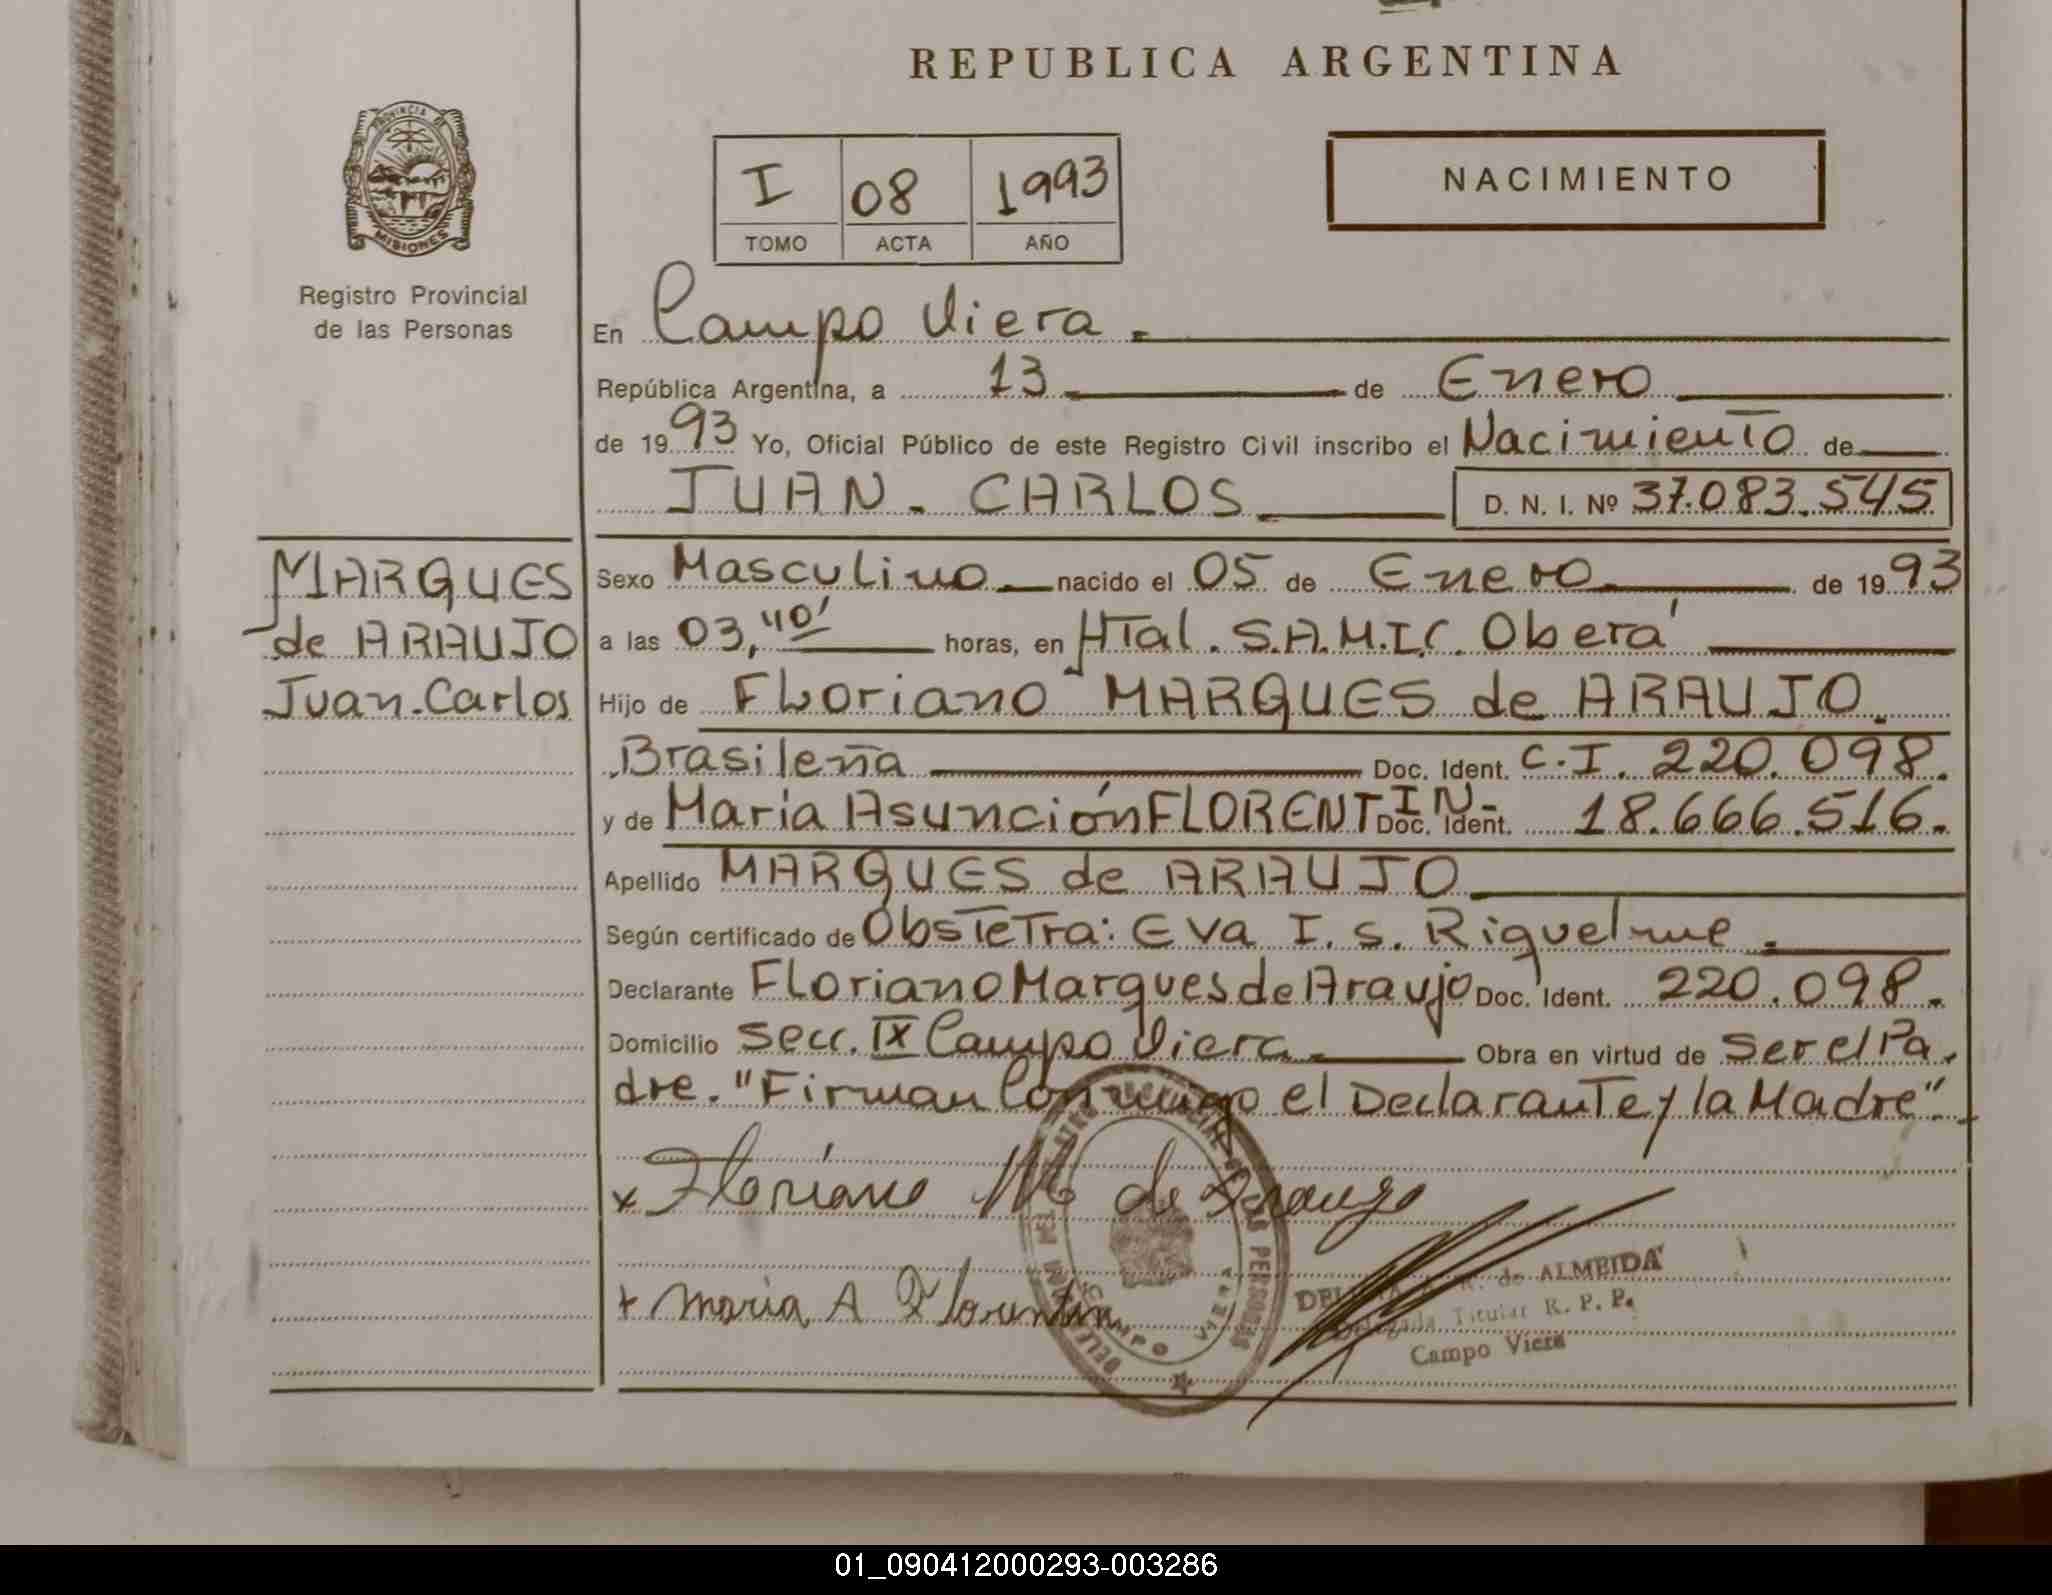 REPUBLICA ARGENTINA
PROVINCIA DE
MISIONES
Registro Provincial
de las Personas
I 08 1993
TOMO ACTA AÑO
NACIMIENTO
En Campo Viera.
República Argentina, a 13 de Enero
de 1993 Yo, Oficial Público de este Registro Civil inscribo el Nacimiento de
JUAN - CARLOS D. N. I. Nº 37.083.545
MARQUES
de ARAUJO
Juan-Carlos
Sexo Masculino nacido el 05 de Enero de 1993
a las 03,40' horas, en HTal. S.A.M.I.C. Oberá
Hijo de Floriano MARQUES de ARAUJO.
Brasileña Doc. Ident. C.I. 220.098.
y de Maria Asunción FLORENTIN- Doc. Ident. 18.666.516.
Apellido MARQUES de ARAUJO
Según certificado de ObsteTra: Eva I. s. Riquelme.
Declarante Floriano Marques de Araujo Doc. Ident. 220.098.
Domicilio Secc. IX Campo Viera. Obra en virtud de Ser el Pa.
dre. "Firman Conmigo el Declarante y la Madre"
x Floriano M de Araujo
+ Maria A Florentin
CAMPO VIERA
de ALMEIDA
Delegada Titular R. P. P.
Campo Viera
01_090412000293-003286